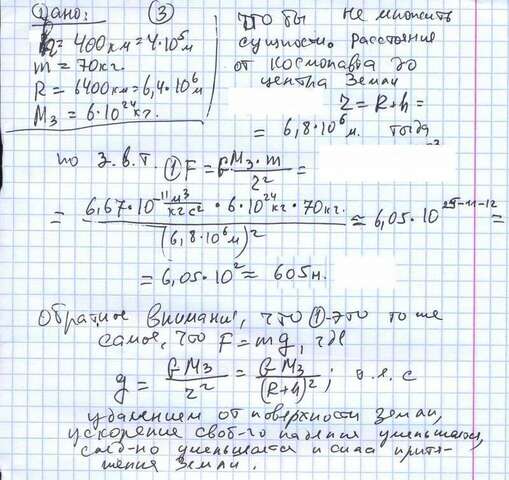 Дано: ③
h = 400км = 4·10⁵м
m = 70кг.
R = 6400км = 6,4·10⁶м
M₃ = 6·10²⁴кг.
что бы не множить
сущности. расстояние
от космонавта до
центра Земли
r = R+h =
= 6,8·10⁶м. тогда
по З.В.Т. ① F = G M₃·m / r² =
= 6,67·10⁻¹¹ м³/кгс² · 6·10²⁴кг · 70кг. / (6,8·10⁶м)² ≈ 6,05·10²⁵⁻¹¹⁻¹² =
= 6,05·10² ≈ 605н.
Обратите внимание, что ①-это то же
самое, что F = mg, где
g = G M₃ / r² = G M₃ / (R+h)²; т.е. с
удалением от поверхности Земли,
ускорение своб-го падения уменьшается,
след-но уменьшается и сила притя-
жения Земли.